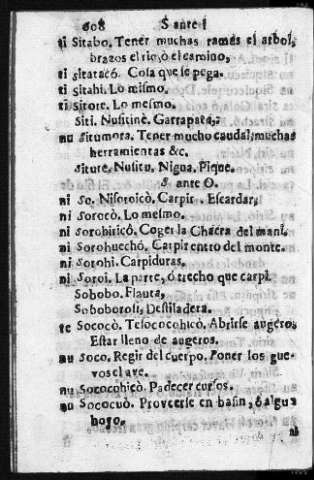 608 S ante I
ti Sitabo. Tener muchas ramas el arbol,
brazos el rio, ò el camino,
ti sitatacò. Cosa que se pega.
ti sitahi. Lo mismo.
ti Sitore. Lo mesmo.
Siti. Nusitinè. Garrapata,
nu situmora. Tener mucho caudal, muchas
herramientas &c.
siture. Nusitu. Nigua. Pique.
S ante O.
ni So. Nisoroicò. Carpir. Escardar,
ni sorocò. Lo mesmo.
ni sorobiricò. Coger la Chacra del mani,
ni Sorohuechò. Carpir entro del monte.
ni Sorohi. Carpiduras.
ni Soroi. La parte, ò trecho que carpi.
Sobobo. Flauta,
Soboborosi, Destiladera.
te Sococò. Tesococohicò. Abrirse augeros
Estar lleno de augeros.
nu Soco. Regir del cuerpo. Poner los gue-
vos el ave.
nu Sococohicò. Padecer cursos.
nu Sococuò. Proveerse en basin, ò algu
hoyo.